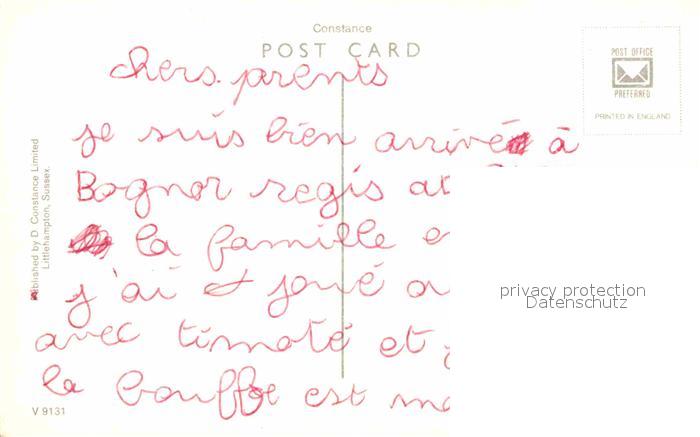 Constance
POST CARD
POST OFFICE
PREFERRED
PRINTED IN ENGLAND
chers parents
je suis bien arrivé à
Bognor regis
la famille
j'ai joué
avec timoté et
la bouffe est
privacy protection
Datenschutz
Published by D. Constance Limited
Littlehampton, Sussex.
V 9131